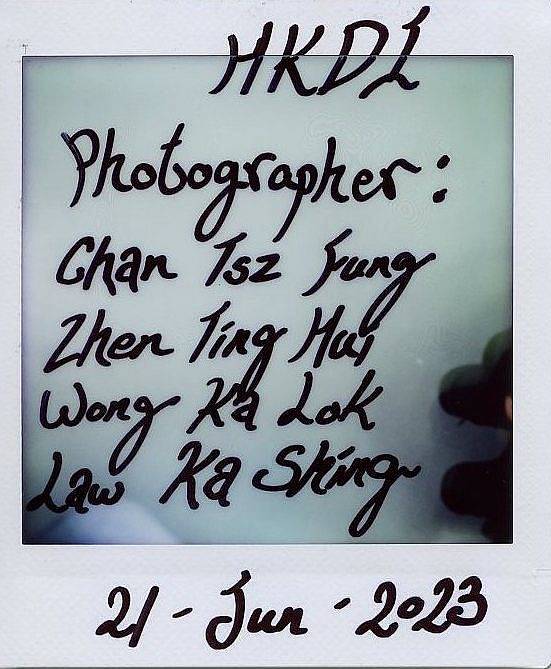 HKDL
Photographer:
Chan Tsz Fung
Zhen Ting Hui
Wong Ka Lok
Law Ka Shing
21 - Jun - 2023